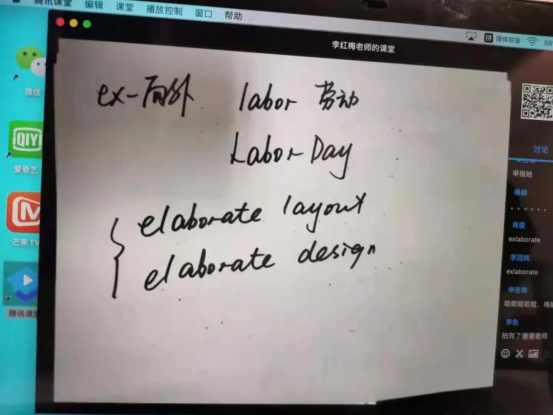 腾讯课堂 编辑 课堂 播放控制 窗口 帮助
简体拼音
李红梅老师的课堂
微信
iQIYI
爱奇艺
芒果TV
腾讯课堂
ex-向外 labor 劳动
Labor Day
elaborate layout
elaborate design
讨论
exlaborate
elaborate